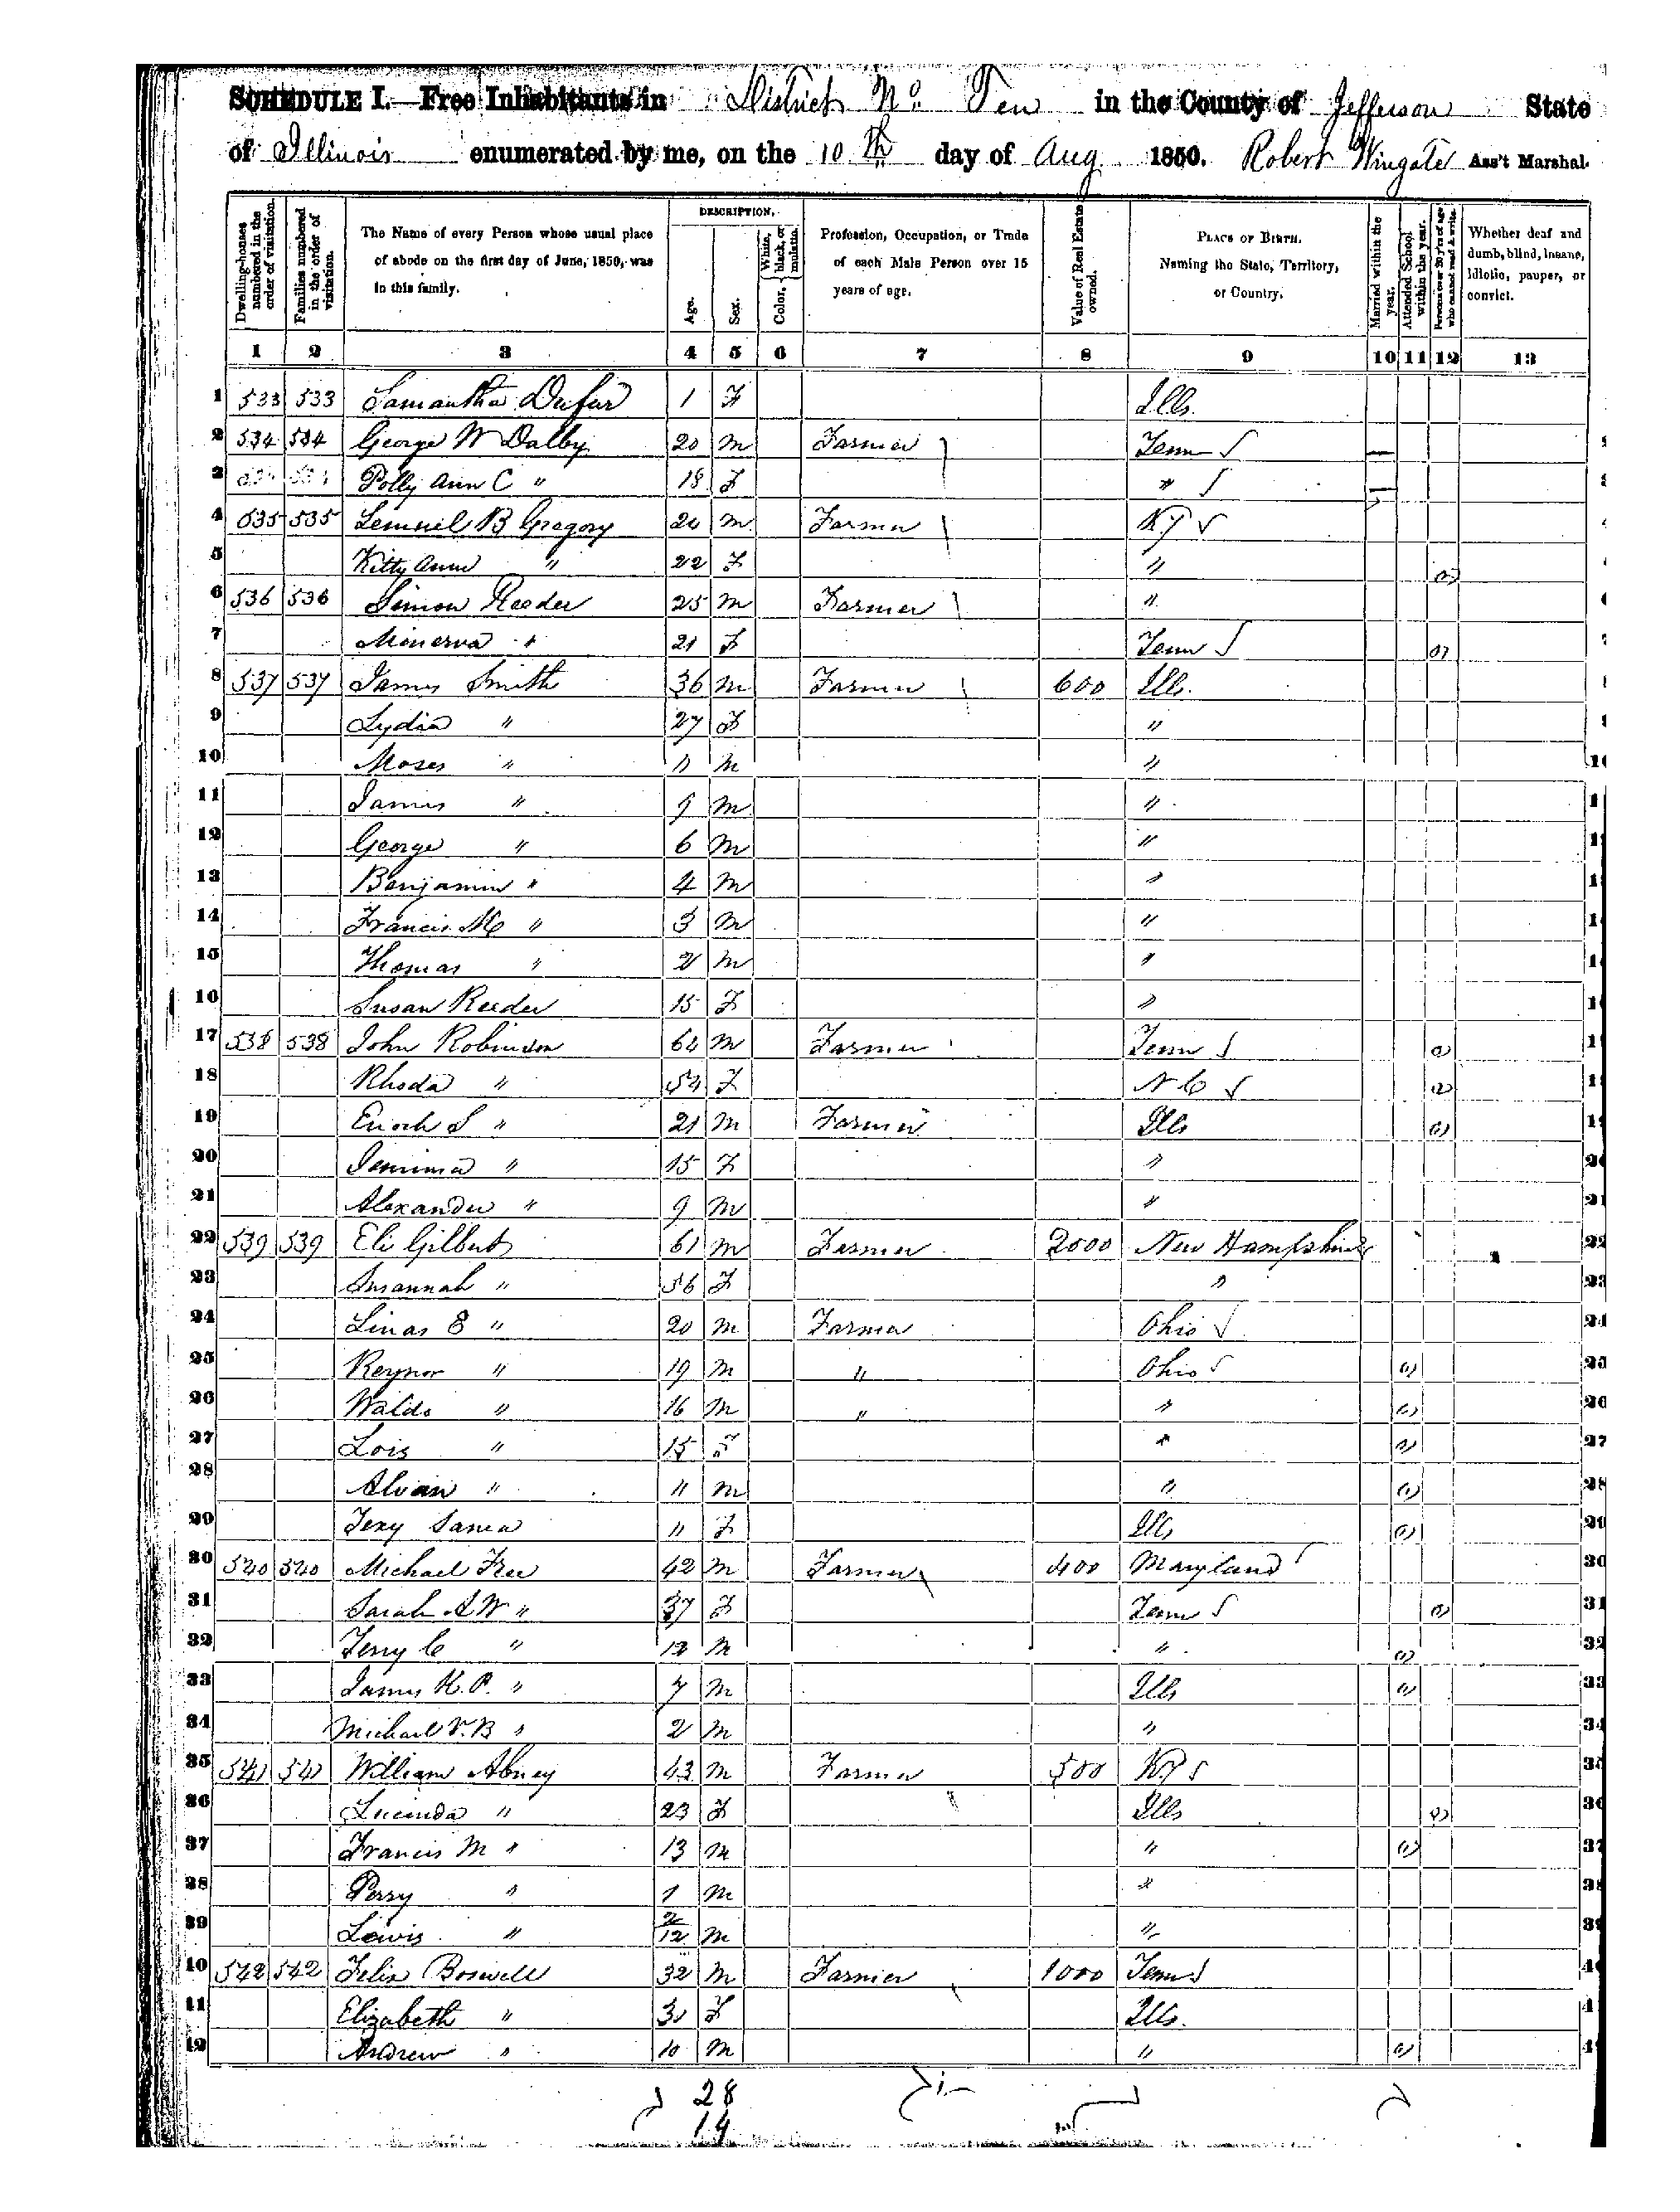 SCHEDULE I.—Free Inhabitants in District No. Ten in the County of Jefferson State
of Illinois enumerated by me, on the 10th day of Aug 1850. Robert Wingate Ass't Marshal.
Dwelling-houses numbered in the order of visitation.
Families numbered in the order of visitation.
The Name of every Person whose usual place of abode on the first day of June, 1850, was in this family.
DESCRIPTION.
Age.
Sex.
Color, White, black, or mulatto.
Profession, Occupation, or Trade of each Male Person over 15 years of age.
Value of Real Estate owned.
PLACE OF BIRTH. Naming the State, Territory, or Country.
Married within the year.
Attended School within the year.
Persons over 20 y'rs of age who cannot read & write.
Whether deaf and dumb, blind, insane, idiotic, pauper, or convict.
1 2 3 4 5 6 7 8 9 10 11 12 13
1 533 533 Samantha Dufur 1 F Ills.
2 534 534 George W Dalby 20 M Farmer Tenn
3 534 534 Polly Ann C " 18 F "
4 535 535 Lemuel B Gregory 24 M Farmer Ky
5 Kitty Ann " 22 F "
6 536 536 Simon Reeder 25 M Farmer "
7 Minerva " 21 F Tenn
8 537 537 James Smith 36 M Farmer 600 Ills.
9 Lydia " 27 F "
10 Moses " 11 M "
11 James " 9 M "
12 George " 6 M "
13 Benjamin " 4 M "
14 Francis M " 3 M "
15 Thomas " 2 M "
16 Susan Reeder 15 F "
17 538 538 John Robinson 64 M Farmer Tenn
18 Rhoda " 54 F N C
19 Enoch S " 21 M Farmer Ills
20 Jemima " 15 F "
21 Alexander " 9 M "
22 539 539 Eli Gilbert 61 M Farmer 2000 New Hampshire
23 Susannah " 56 F "
24 Linas E " 20 M Farmer Ohio
25 Reynor " 19 M " Ohio
26 Waldo " 16 M " "
27 Lois " 15 F "
28 Alvan " 11 M "
29 11 F Ills
30 540 540 Michael Free 42 M Farmer 400 Maryland
31 Sarah A W " 37 F Tenn
32 Terry C " 12 M "
33 James K. P. " 7 M Ills
34 Michael V. B " 2 M "
35 541 541 William Abney 43 M Farmer 500 Ky
36 Lucinda " 23 F Ills
37 Francis M " 13 M "
38 Perry " 1 M "
39 Lewis " 2/12 M "
40 542 542 Felix Boswell 32 M Farmer 1000 Tenn
41 Elizabeth " 31 F Ills.
42 Andrew " 10 M "
28
14